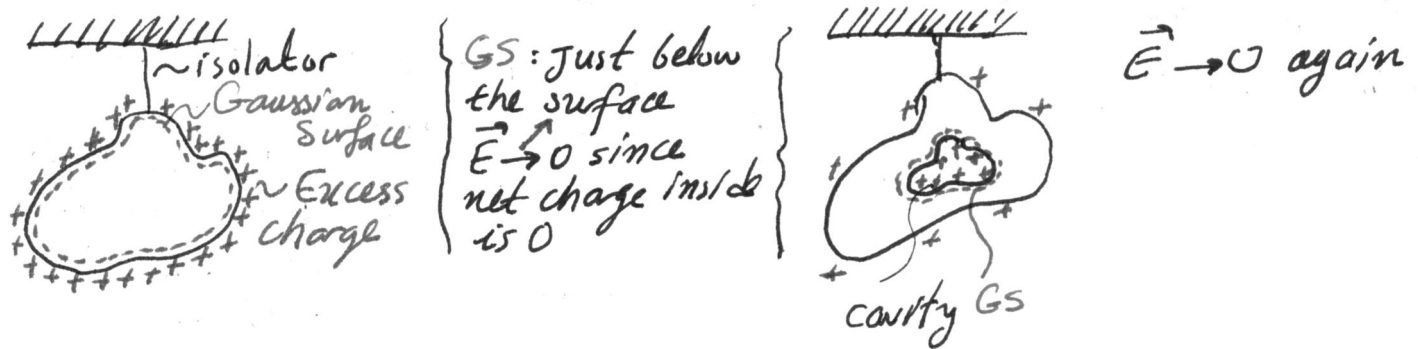 ~isolator
~Gaussian
Surface
~Excess
charge
GS: Just below
the surface
E→0 since
net charge inside
is 0
cavity GS
E→0 again